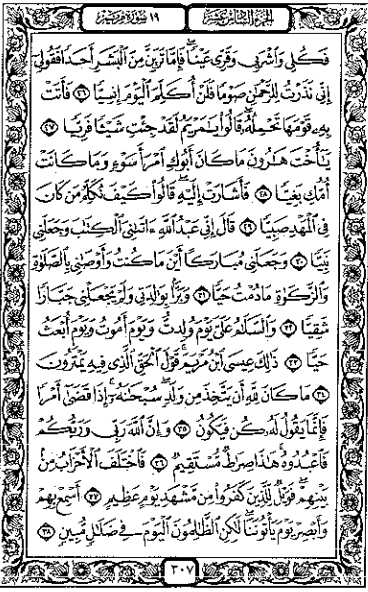 الجزء السادس عشر
١٩ سورة مريم
فَكُلِي وَاشْرَبِي وَقَرِّي عَيْنًا فَإِمَّا تَرَيِنَّ مِنَ الْبَشَرِ أَحَدًا فَقُولِي
إِنِّي نَذَرْتُ لِلرَّحْمَٰنِ صَوْمًا فَلَنْ أُكَلِّمَ الْيَوْمَ إِنسِيًّا ٢٦ فَأَتَتْ
بِهِ قَوْمَهَا تَحْمِلُهُ قَالُوا يَا مَرْيَمُ لَقَدْ جِئْتِ شَيْئًا فَرِيًّا ٢٧
يَا أُخْتَ هَارُونَ مَا كَانَ أَبُوكِ امْرَأَ سَوْءٍ وَمَا كَانَتْ
أُمُّكِ بَغِيًّا ٢٨ فَأَشَارَتْ إِلَيْهِ قَالُوا كَيْفَ نُكَلِّمُ مَن كَانَ
فِي الْمَهْدِ صَبِيًّا ٢٩ قَالَ إِنِّي عَبْدُ اللَّهِ آتَانِيَ الْكِتَابَ وَجَعَلَنِي
نَبِيًّا ٣٠ وَجَعَلَنِي مُبَارَكًا أَيْنَ مَا كُنتُ وَأَوْصَانِي بِالصَّلَاةِ
وَالزَّكَاةِ مَا دُمْتُ حَيًّا ٣١ وَبَرًّا بِوَالِدَتِي وَلَمْ يَجْعَلْنِي جَبَّارًا
شَقِيًّا ٣٢ وَالسَّلَامُ عَلَيَّ يَوْمَ وُلِدتُّ وَيَوْمَ أَمُوتُ وَيَوْمَ أُبْعَثُ
حَيًّا ٣٣ ذَٰلِكَ عِيسَى ابْنُ مَرْيَمَ قَوْلَ الْحَقِّ الَّذِي فِيهِ يَمْتَرُونَ
٣٤ مَا كَانَ لِلَّهِ أَن يَتَّخِذَ مِن وَلَدٍ سُبْحَانَهُ إِذَا قَضَىٰ أَمْرًا
فَإِنَّمَا يَقُولُ لَهُ كُن فَيَكُونُ ٣٥ وَإِنَّ اللَّهَ رَبِّي وَرَبُّكُمْ
فَاعْبُدُوهُ هَٰذَا صِرَاطٌ مُّسْتَقِيمٌ ٣٦ فَاخْتَلَفَ الْأَحْزَابُ مِن
بَيْنِهِمْ فَوَيْلٌ لِّلَّذِينَ كَفَرُوا مِن مَّشْهَدِ يَوْمٍ عَظِيمٍ ٣٧ أَسْمِعْ بِهِمْ
وَأَبْصِرْ يَوْمَ يَأْتُونَنَا لَٰكِنِ الظَّالِمُونَ الْيَوْمَ فِي ضَلَالٍ مُّبِينٍ ٣٨
٣٠٧